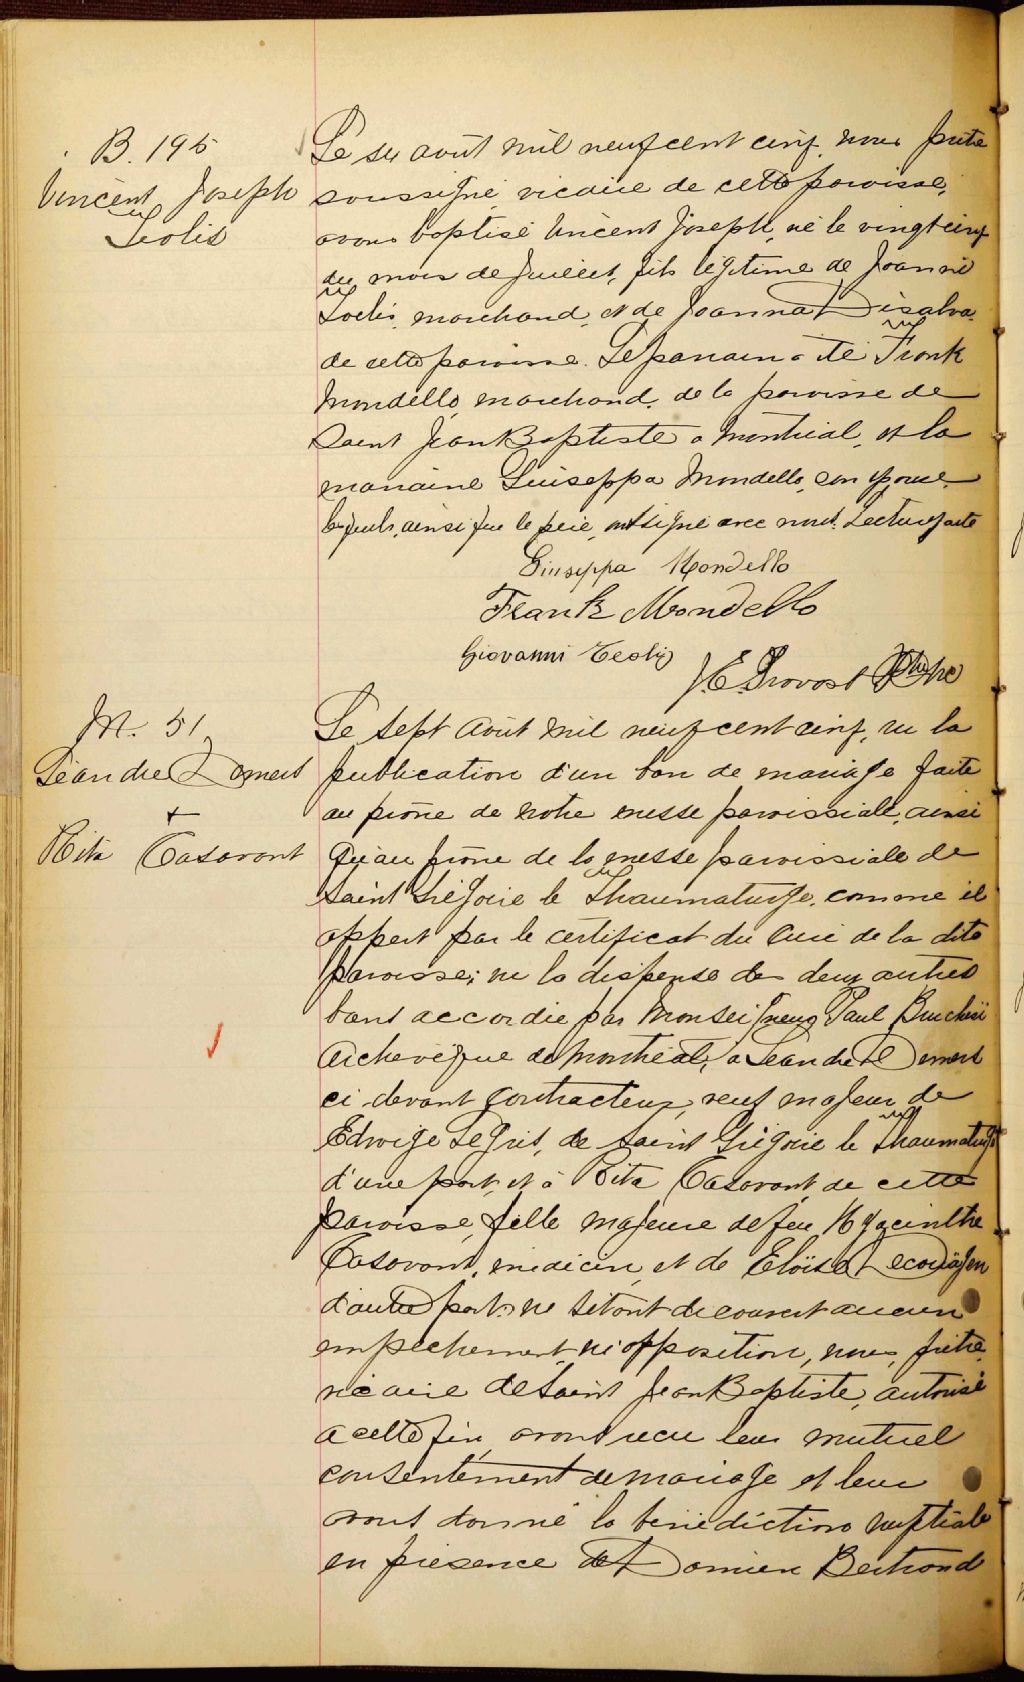 B. 195
Vincent Joseph
Teolis
Le six août mil neuf cent cinq, nous prêtre
soussigné, vicaire de cette paroisse,
avons baptisé Vincent Joseph, né le vingt cinq
du mois de Juillet, fils légitime de Joanni
marchand, et de Joanna Disalvo
de cette paroisse. Le parrain a été Frank
Mondello, marchand, de la paroisse de
Saint Jean Baptiste à Montréal, et la
marraine Guiseppa Mondello, son épouse
lesquels, ainsi que le père, ont signé avec nous. Lecture faite
Giuseppa Mondello
Frank Mondello
Giovanni Teolis
J. E. Provost Ptre
M. 51
Léandre Demers
+
Rita Casavant
Le sept août mil neuf cent cinq, vu la
publication d'un ban de mariage faite
au prône de notre messe paroissiale, ainsi
qu'au prône de la messe paroissiale de
Saint Grégoire le Thaumaturge, comme il
appert par le certificat du curé de la dite
paroisse; vu la dispense des deux autres
bans accordée par Monseigneur Paul Bruchési
Archevêque de Montréal, à Léandre Demers
ci-devant contracteur, veuf majeur de
Edwige Legris, de Saint Grégoire le Thaumaturge
d'une part, et à Rita Casavant de cette
paroisse, fille majeure de feu Hyacinthe
Casavant, médecin, et de Eloïse
d'autre part; ne s'étant découvert aucun
empêchement, ni opposition, nous, prêtre
vicaire de Saint Jean Baptiste, autorisé
à cette fin, avons reçu leur mutuel
consentement de mariage et leur
avons donné la bénédiction nuptiale
en présence de Damien Bertrand